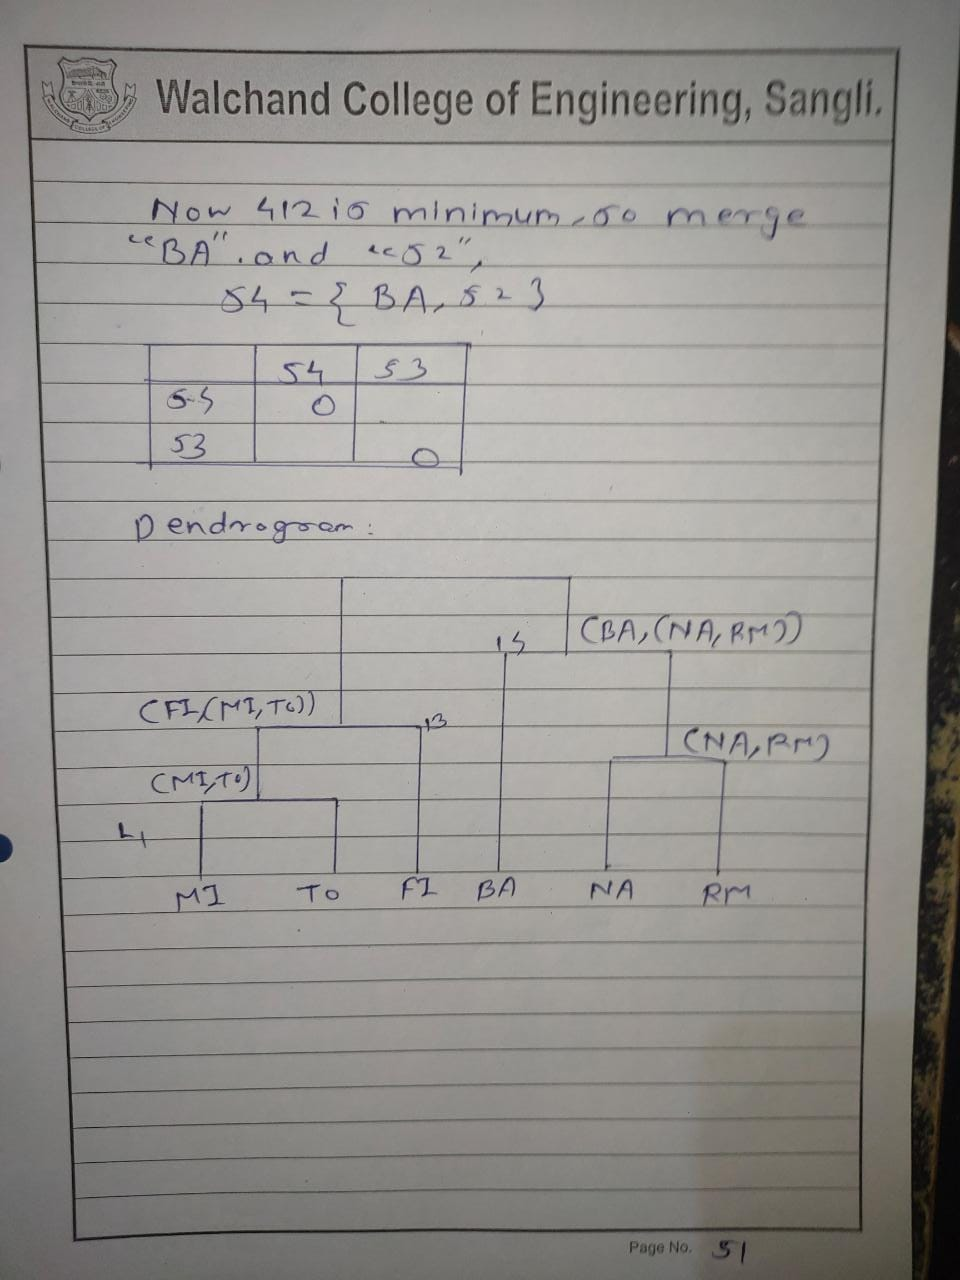 Walchand College of Engineering, Sangli.
Now 412 is minimum, so merge
"BA". and "S2",
S4 = { BA, S2 }
S4 S3
S4 0
S3 0
Dendrogram:
(BA, (NA, RM))
(FI, (MI, TO))
(NA, RM)
(MI, TO)
L1
MI TO FI BA NA RM
Page No. 51